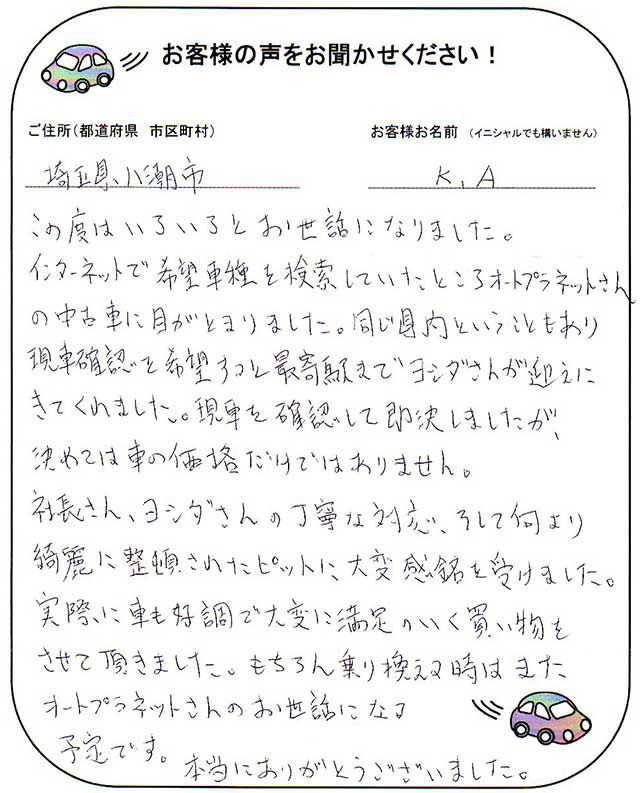 お客様の声をお聞かせください！
ご住所（都道府県　市区町村）
お客様お名前　（イニシャルでも構いません）
埼玉県、八潮市
K, A
この度はいろいろとお世話になりました。
インターネットで希望車種を検索していたところオートプラネットさん
の中古車に目がとまりました。同じ県内ということもあり
現車確認を希望すると最寄駅までヨシダさんが迎えに
きてくれました。現車を確認して即決しましたが、
決めては車の価格だけではありません。
社長さん、ヨシダさんの丁寧な対応、そして何より
綺麗に整頓されたピットに、大変感銘を受けました。
実際に車も好調で大変に満足のいく買い物を
させて頂きました。もちろん乗り換える時はまた
オートプラネットさんのお世話になる
予定です。
本当にありがとうございました。